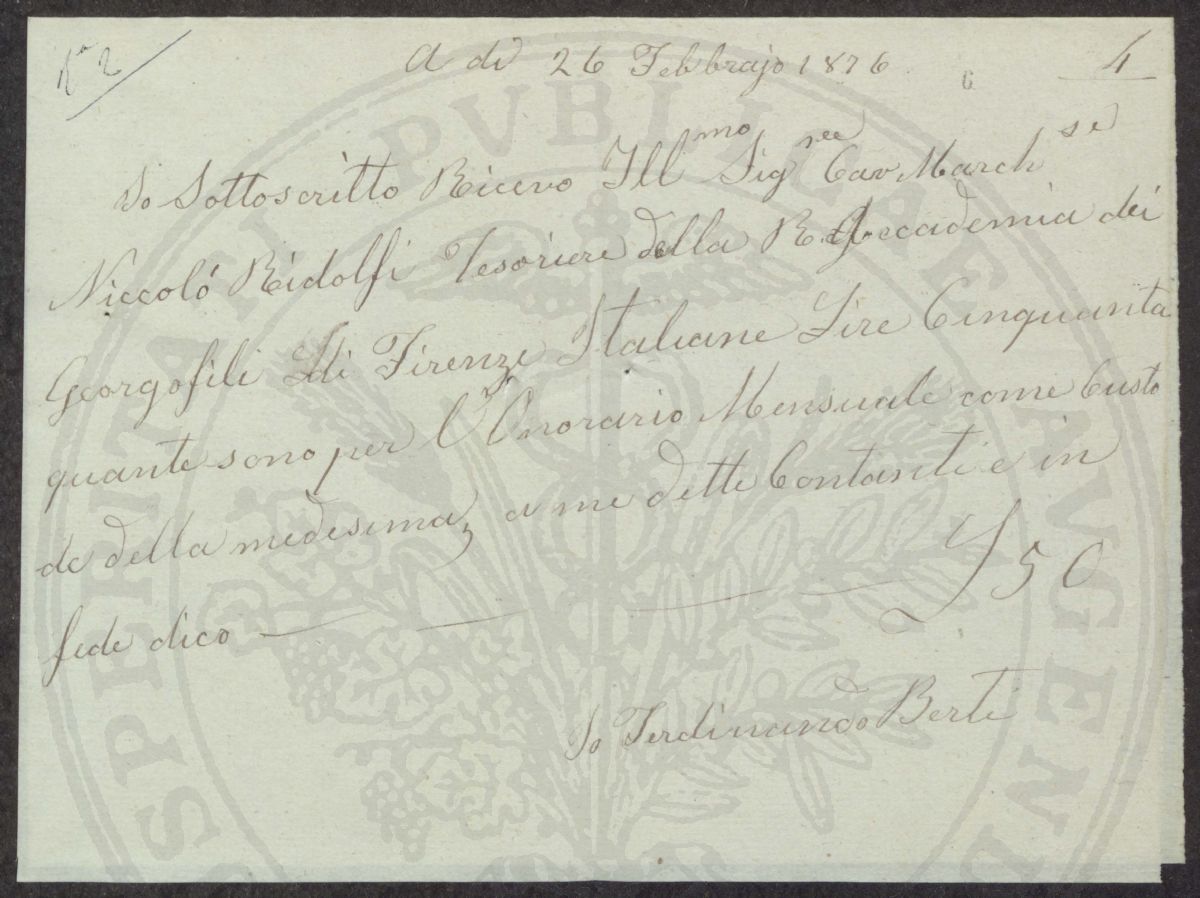 N° 2
A dì 26 Febbrajo 1876
4
Io Sottoscritto Ricevo Ill^mo Sig^re Cav March^se
Niccoló Ridolfi Tesoriere della R. Accademia dei
Georgofili Di Firenze Italiane Lire Cinquanta
quante sono per l'Onorario Mensuale come Custo
de della medesima, a me dette Contanti e in
fede dico — — — — L 50
Io Ferdinando Berti
PROSPERITATI PVBLICAE AVGENDAE